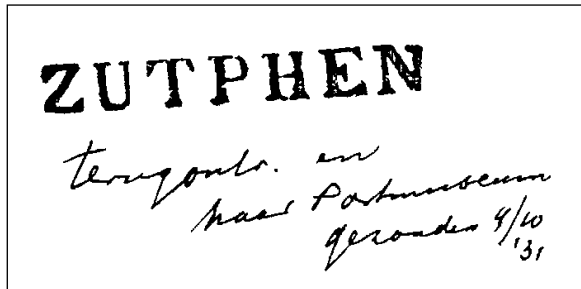 ZUTPHEN
terugontv. en
naar Postmuseum
gezonden 9/10
'31